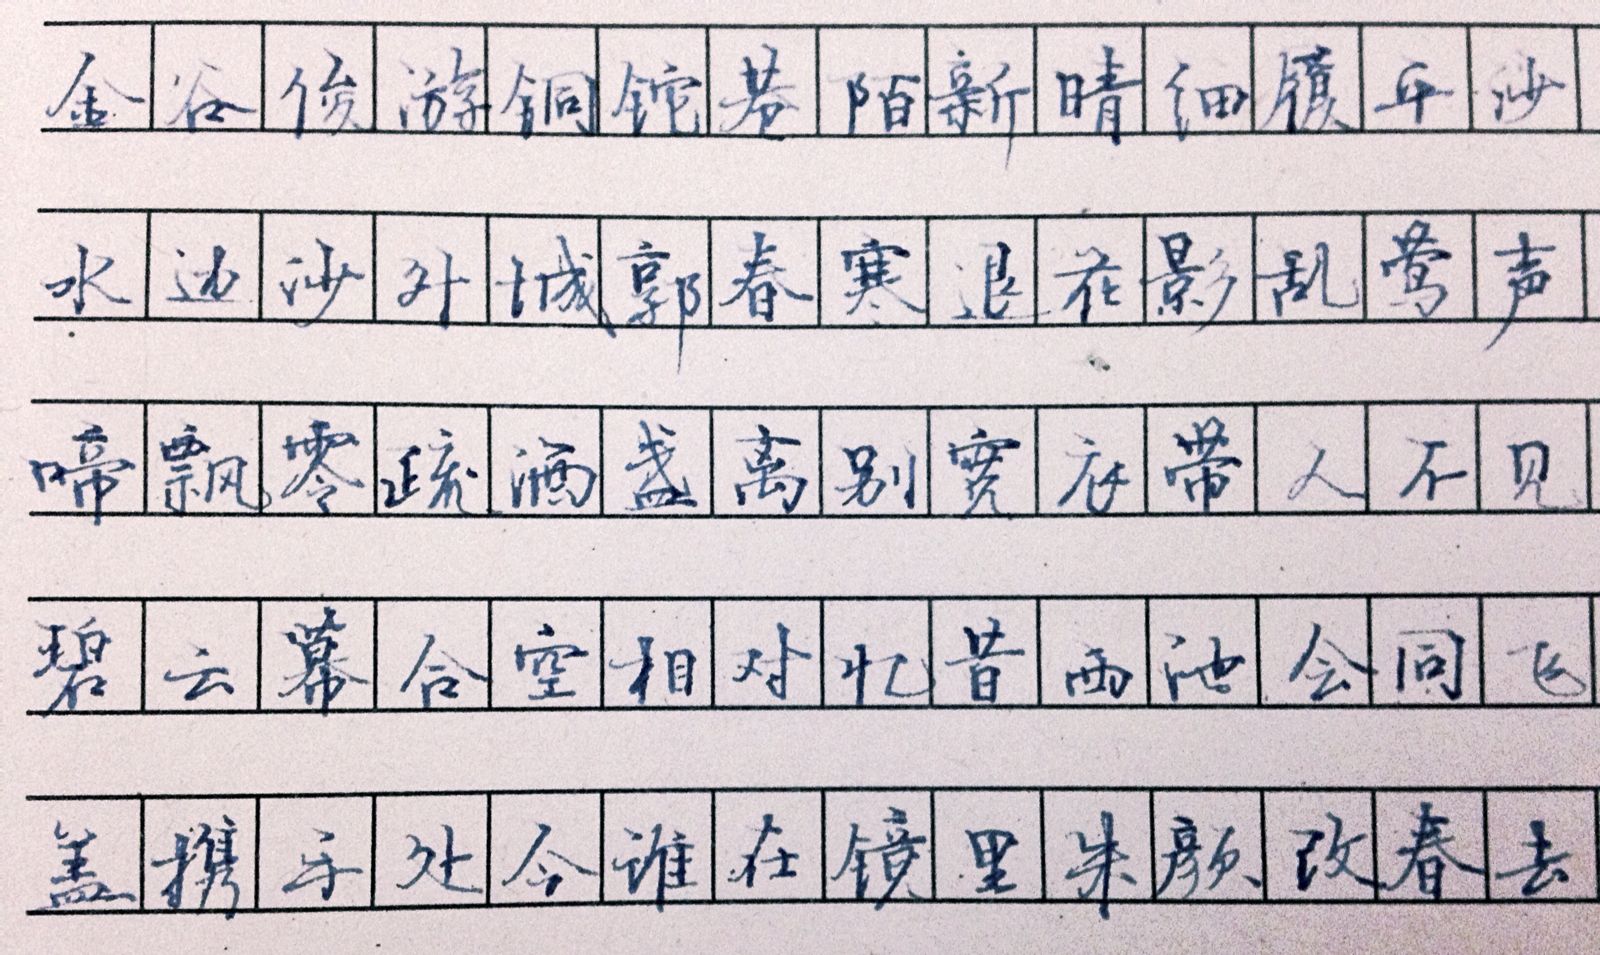 金谷俊游銅鉈巷陌新晴细履平沙
水边沙外城郭春寒退花影乱莺声
啼飘零疏酒盏离别宽衣带人不见
碧云幕合空相对忆昔西池会同飞
盖携手处今谁在镜里朱颜改春去